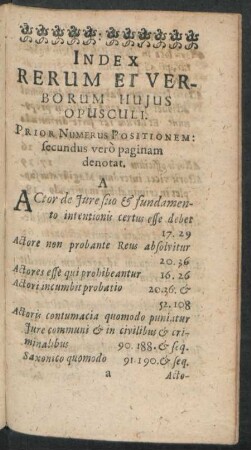 INDEX
RERUM ET VER-
BORUM HUJUS
OPUSCULI.
PRIOR NUMERUS POSITIONEM:
secundus verò paginam
denotat.
A
ACtor de Jure suo & fundamen-
to intentionis certus esse debet
17. 29
Actore non probante Reus absolvitur
20. 36
Actores esse qui prohibeantur 16. 26
Actori incumbit probatio 20.36. &
52. 108
Actoris contumacia quomodo puniatur
Jure communi & in civilibus & cri-
minalibus 90. 188. & seq.
Saxonico quomodo 91.190. & seq.
a Acto-